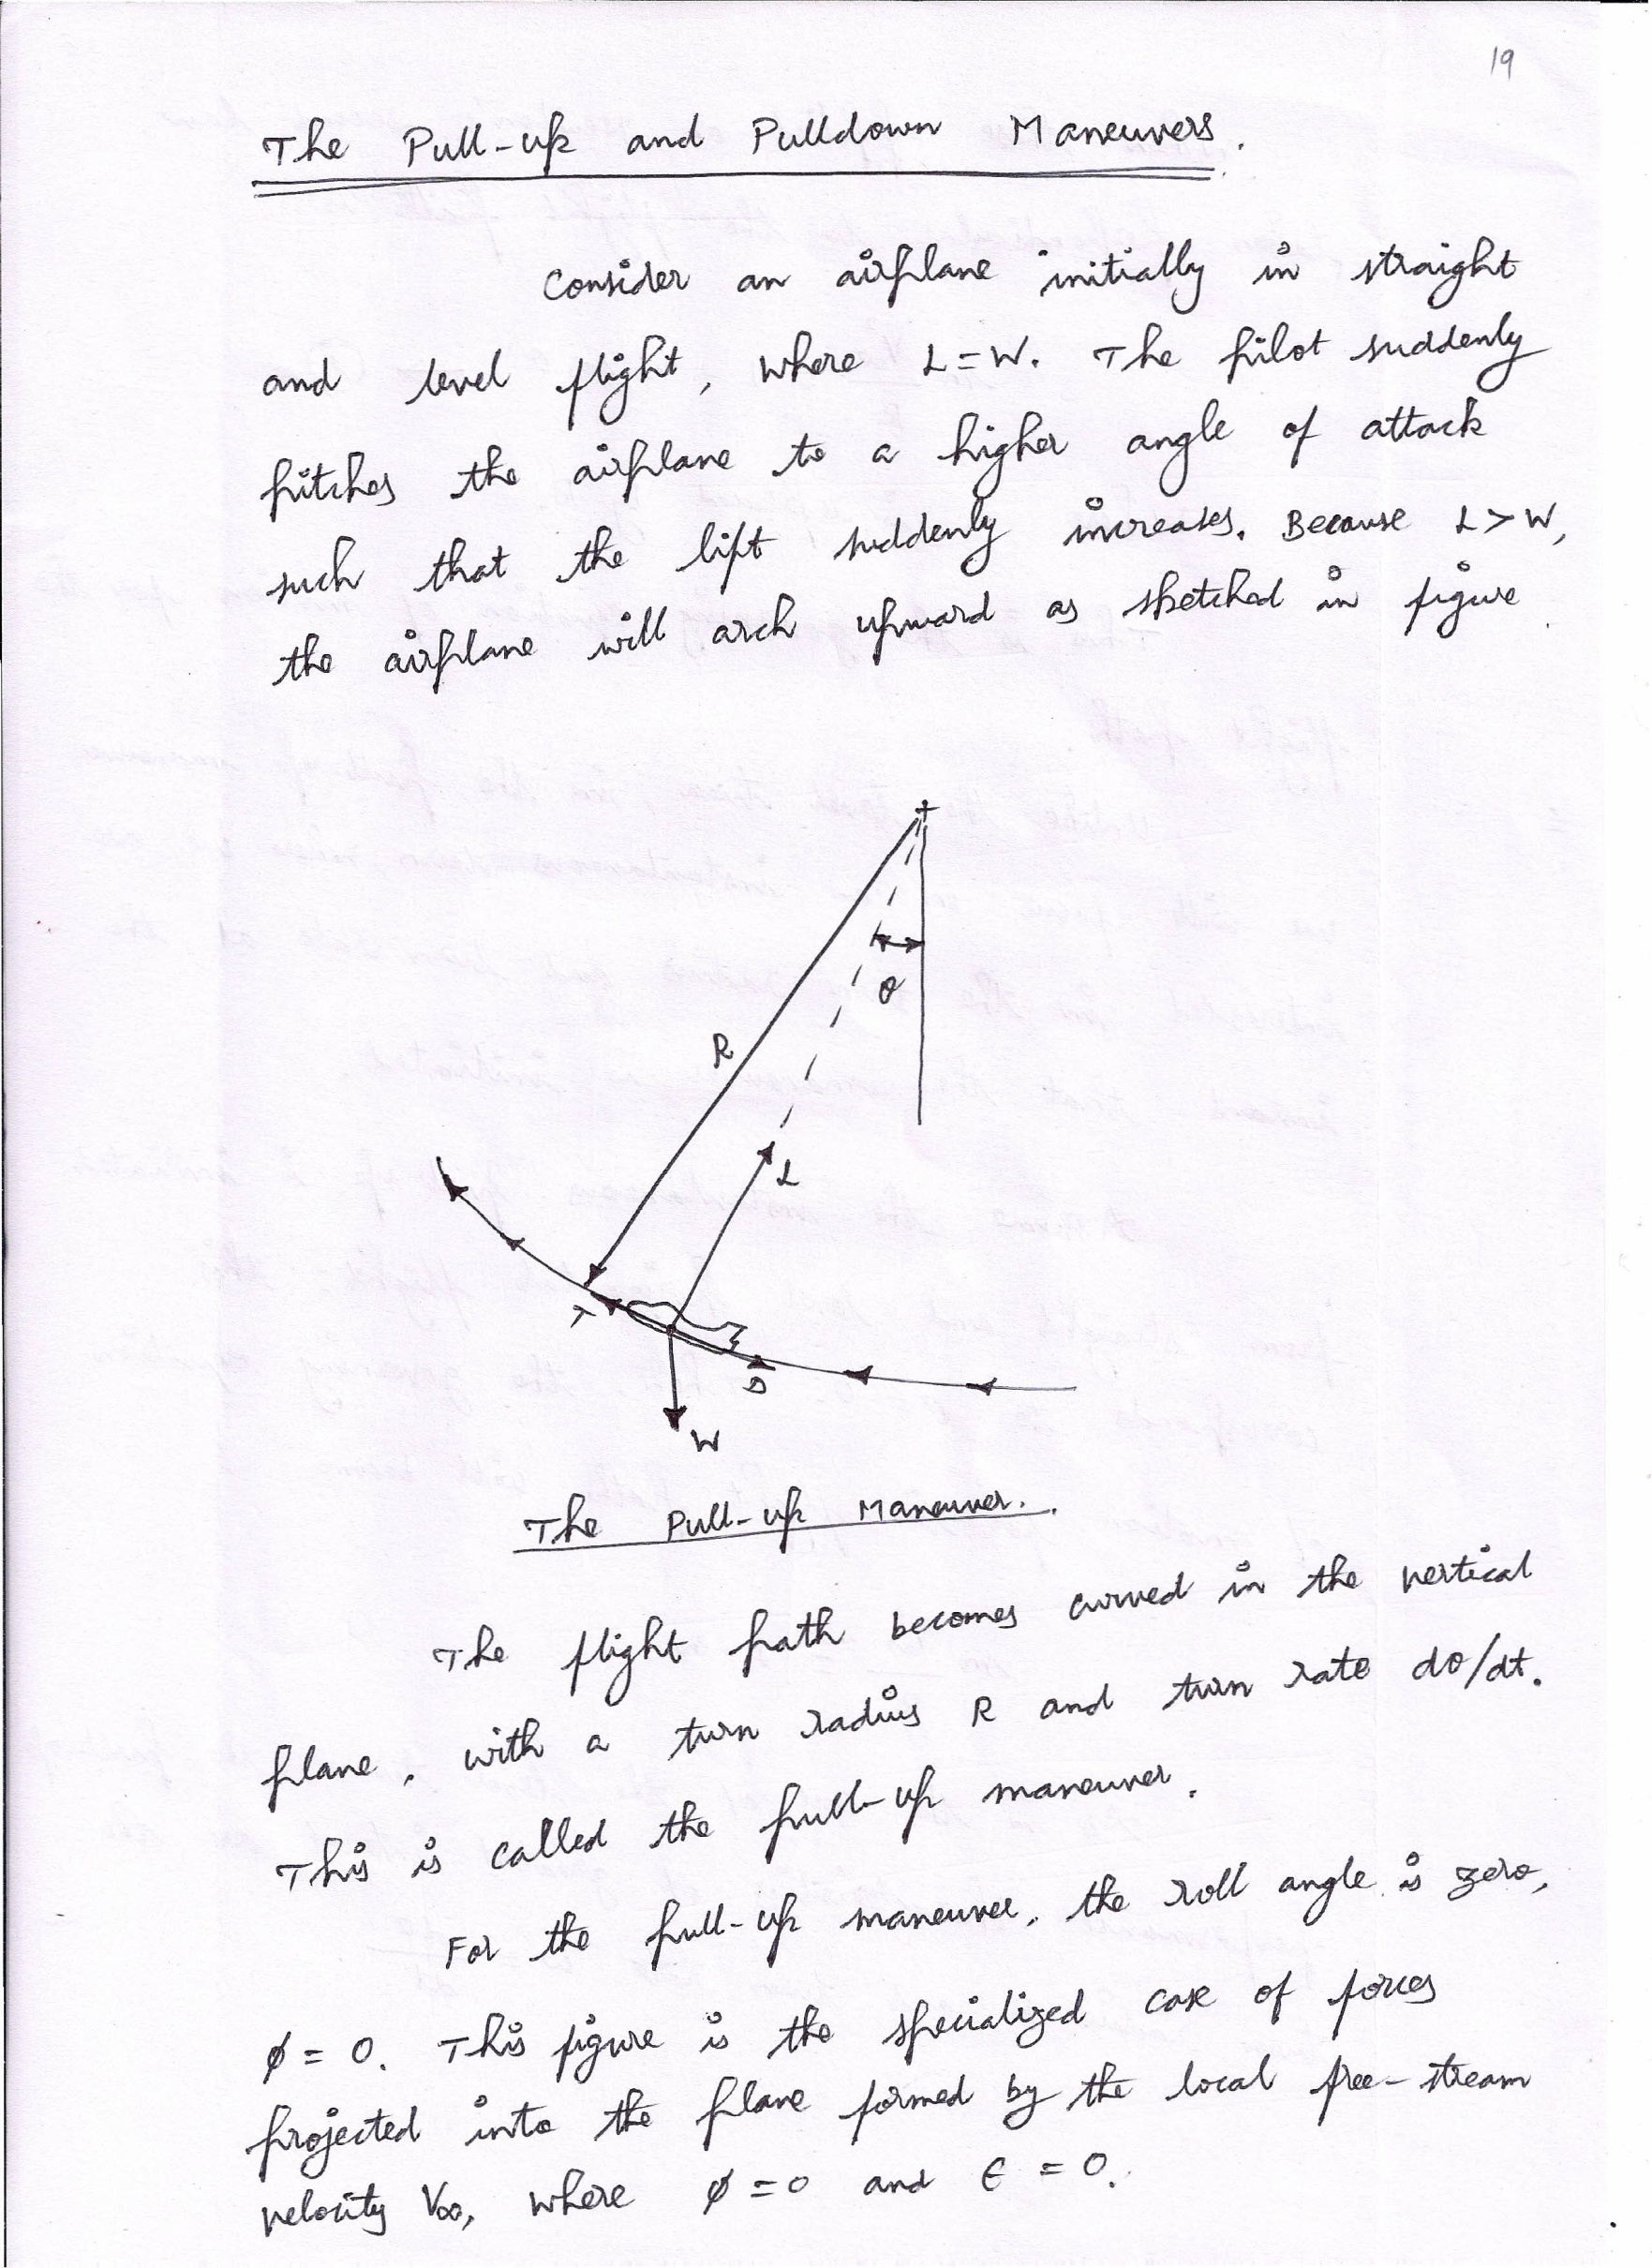 19
The Pull-up and Pulldown Maneuvers.
Consider an airplane initially in straight
and level flight, where L=W. The pilot suddenly
pitches the airplane to a higher angle of attack
such that the lift suddenly increases. Because L>W,
the airplane will arch upward as sketched in figure.
θ
R
L
T
D
W
The Pull-up Maneuver.
The flight path becomes curved in the vertical
plane, with a turn radius R and turn rate dθ/dt.
This is called the pull-up maneuver.
For the pull-up maneuver, the roll angle is zero,
ϕ = 0. This figure is the specialized case of forces
projected into the plane formed by the local free-stream
velocity V∞, where ϕ = 0 and ϵ = 0.